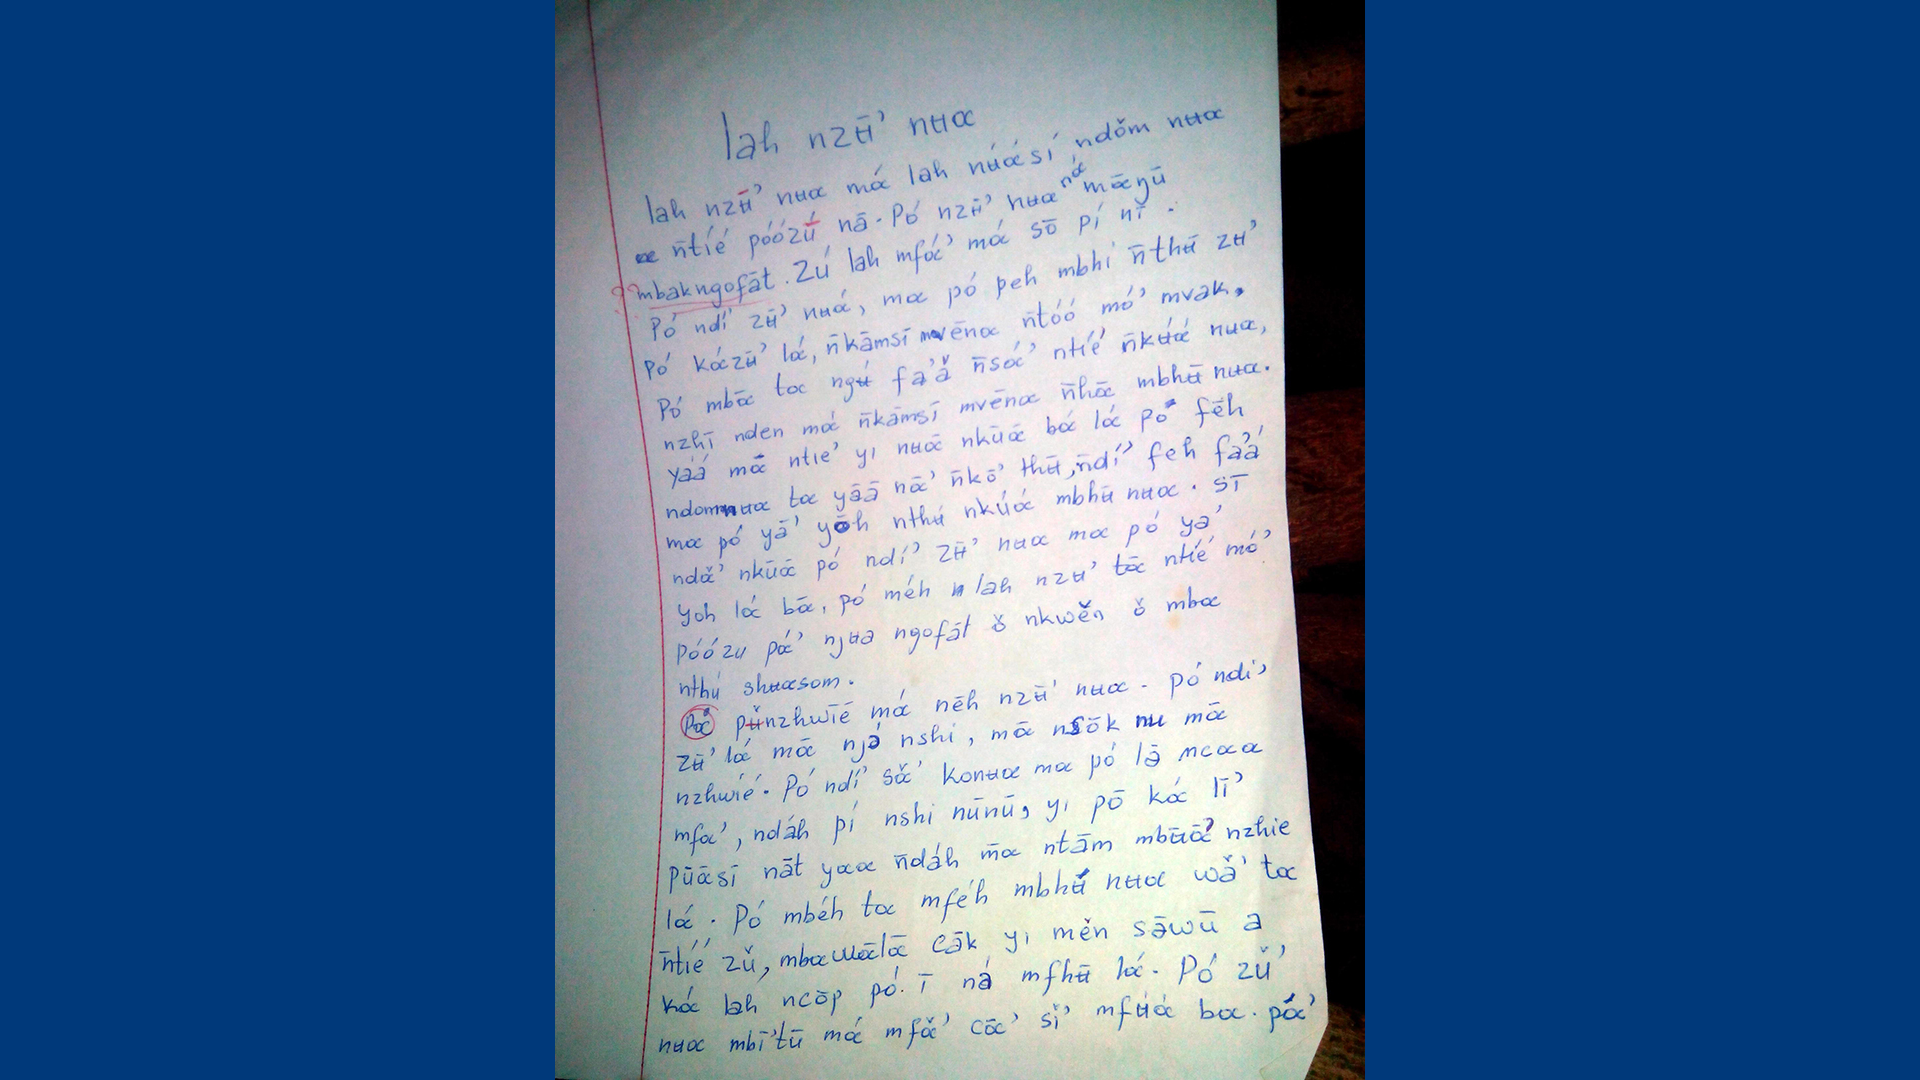 lah nzʉ̄' nʉɑ
lah nzʉ̄' nʉɑ mɑ́ lah nʉ́ɑ́sí ndǒm nʉɑ
ɑ n̄tíé póózʉ́ nā. Pó nzʉ̄' nʉɑ nɑ́ mɑ̄ŋū
mbakngofāt. Zú lah mfɑ́' mɑ́ sō pí nī.
Pó ndí' zʉ̄' nʉɑ́, mɑ pó peh mbhi n̄thʉ̄ zʉ'
pó kɑ́zʉ̄' lɑ́, n̄kāmsī mvēnɑ n̄tóó mó' mvak,
Pó mbɑ̄ tɑ ngʉ́ fa'ǎ n̄sɑ́' ntíé n̄kʉ́ɑ́ nʉɑ,
nzhī nden mɑ́ n̄kāmsī mvēnɑ n̄hɑ̄ mbhʉ̄ nʉɑ.
yáá mɑ̄ ntie' yi nʉɑ̄ nkʉ̄ɑ̄ bɑ́ lɑ́ pó fēh
ndomnʉɑ tɑ yāā nɑ̄' n̄kō' thʉ̄, n̄dí' feh fa'á
mɑ pó yā' yōh nthʉ́ nkʉ́ɑ́ mbhʉ̄ nʉɑ. sī
ndɑ̌' nkʉ̄ɑ̄ pó ndí' zʉ̄' nʉɑ mɑ pó ya'
yoh lɑ́ bɑ̄, pó méh lah nzʉ' tɑ̄ ntíé mó'
póózʉ pɑ́' njʉa ngofāt ǒ nkwěn ǒ mbɑ
nthʉ́ shʉɑsom.
Pɑ̌ pʉ̌nzhwīē mɑ́ nēh nzʉ̄' nʉɑ. Pó ndi'
zʉ̄' lɑ́ mɑ̄ njǝ́ nshi, mɑ̄ nsōk nu mɑ̄
nzhwíé. Pó ndí' sɑ̌' konʉɑ mɑ pó lǝ̄ ncɑɑ
mfɑ', ndáh pí nshi nūnū, yi pō kɑ́ lī'
pʉ̄ɑ̄sī nāt yɑɑ n̄dáh m̄ɑ ntām mbʉ̄ɑ̄' nzhie
lɑ́. Pó mbéh tɑ mféh mbhʉ́ nʉɑ wǎ' tɑ
n̄tíé zǔ, mbɑwɑ̄lɑ̄ cāk yi měn sǝ̄wū a
kɑ́ lah ncōp pó. ī nǝ́ mfhʉ̄ lɑ́. Pó zʉ̌'
nʉɑ mbī'tū mɑ́ mfɑ̌' cɑ̄' sǐ' mfʉ́ɑ́ bɑ. pɑ́'